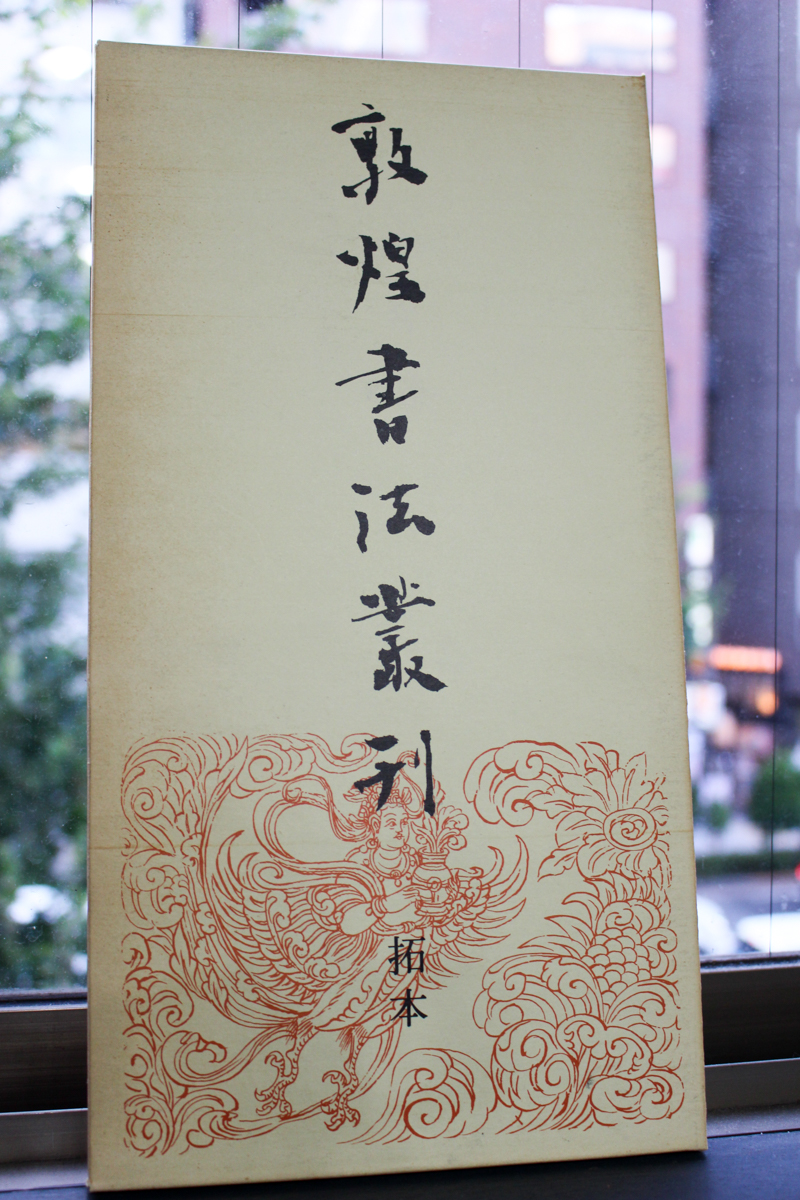 敦煌書法叢刊
拓本